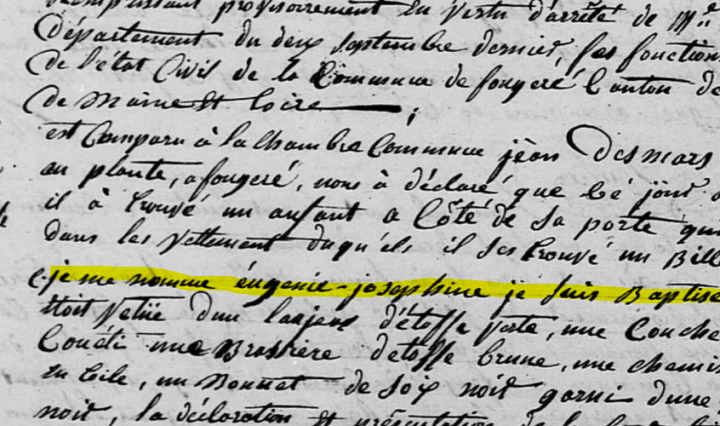 remplissant provisoirement en vertu d'arrêté de Mr
Département du deux septembre dernier, les fonction
De l'état Civil de la Commune de fougeré Canton de
de Maine et Loire ;
est Comparu à la Chambre Commune jean Desmars
au plante, a fougeré, nous à déclaré que le jour
il à trouvé un anfant a Côté de sa porte que
dans les vettement duquels il ses trouvé un Bill
je me nomme éugenie-josephine je suis Baptise
étoit vetüe dun d'étoffe verte, une Couche
Couéti une Brassiere d'etoffe brune, une chemis
en toile, un Bonnet de soix noir garni dune
noir, la déclaration et présentation de la